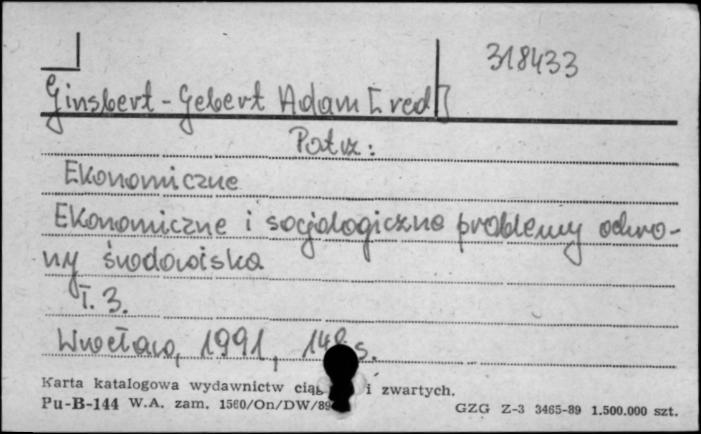 318433
Ginsbert-Gebert Adam [red]
Patrz:
Ekonomiczne
Ekonomiczne i socjologiczne problemy ochro-
ny środowiska
T. 3.
Wrocław, 1991, s.
Karta katalogowa wydawnictw i zwartych.
Pu-B-144 W.A. zam. 1560/On/DW/89
GZG Z-3 3465-89 1.500.000 szt.